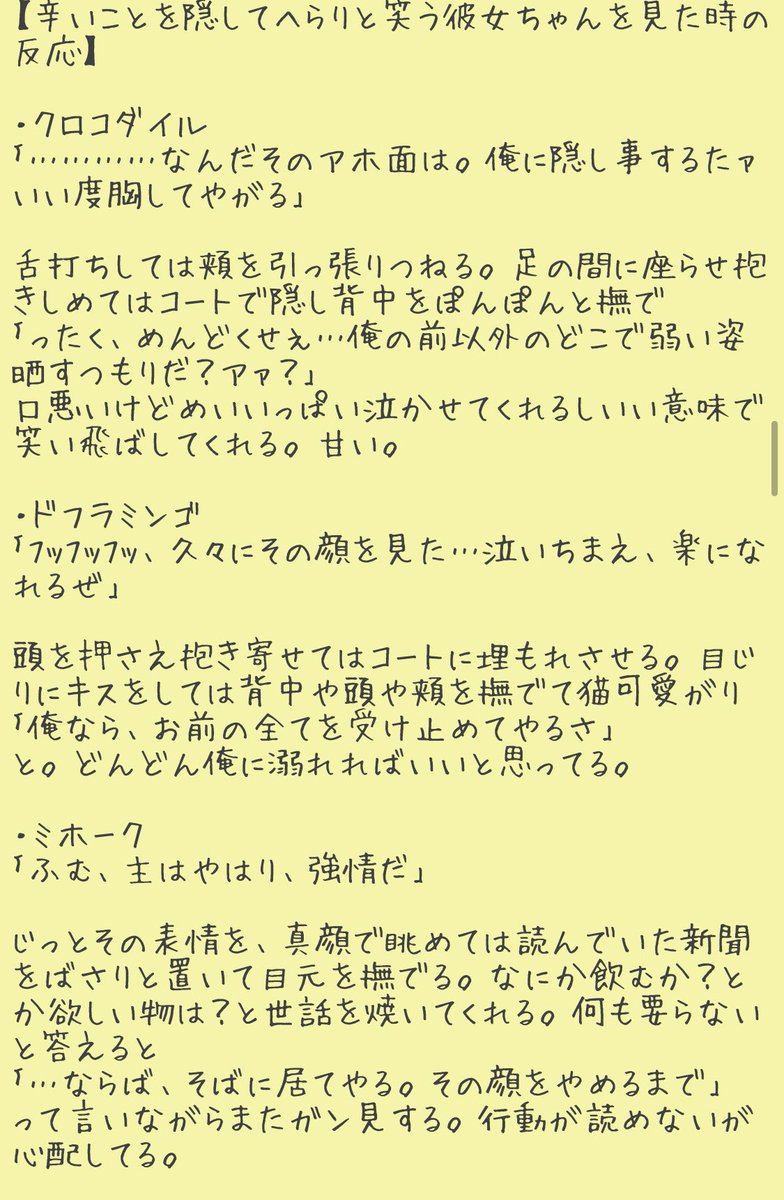 【辛いことを隠してへらりと笑う彼女ちゃんを見た時の
反応】
・クロコダイル
「…………なんだそのアホ面は。俺に隠し事するたァ
いい度胸してやがる」
舌打ちしては頬を引っ張りつねる。足の間に座らせ抱
きしめてはコートで隠し背中をぽんぽんと撫で
「ったく、めんどくせぇ…俺の前以外のどこで弱い姿
晒すつもりだ?アァ?」
口悪いけどめいいっぱい泣かせてくれるしいい意味で
笑い飛ばしてくれる。甘い。
・ドフラミンゴ
「フッフッフッ、久々にその顔を見た…泣いちまえ、楽にな
れるぜ」
頭を押さえ抱き寄せてはコートに埋もれさせる。目じ
りにキスをしては背中や頭や頬を撫でて猫可愛がり
「俺なら、お前の全てを受け止めてやるさ」
と。どんどん俺に溺れればいいと思ってる。
・ミホーク
「ふむ、主はやはり、強情だ」
じっとその表情を、真顔で眺めては読んでいた新聞
をばさりと置いて目元を撫でる。なにか飲むか?と
か欲しい物は?と世話を焼いてくれる。何も要らない
と答えると
「…ならば、そばに居てやる。その顔をやめるまで」
って言いながらまたガン見する。行動が読めないが
心配してる。